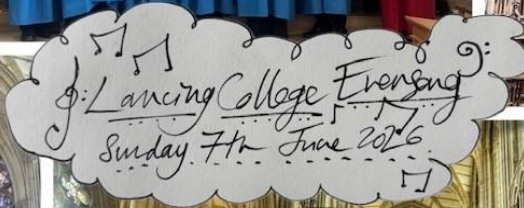 Lancing College Evensong
Sunday 7th June 2026